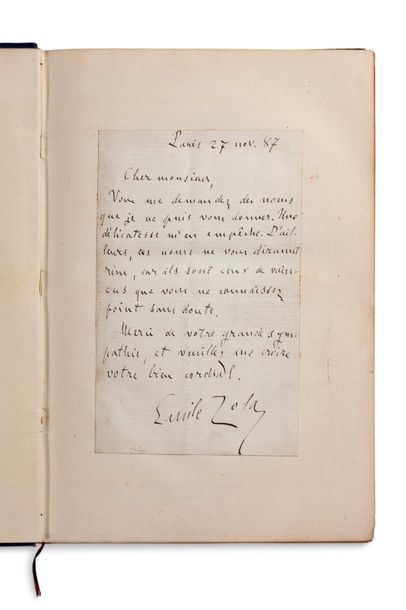 Paris 27 nov. 87
Cher monsieur,
Vous me demandez des noms
que je ne puis vous donner. Une
délicatesse m'en empêche. D'ail-
leurs, ces noms ne vous diraient
rien, car ils sont ceux de vain-
cus que vous ne connaissez
point sans doute.
Merci de votre grande sym-
pathie, et veuillez me croire
votre bien cordial.
Emile Zola